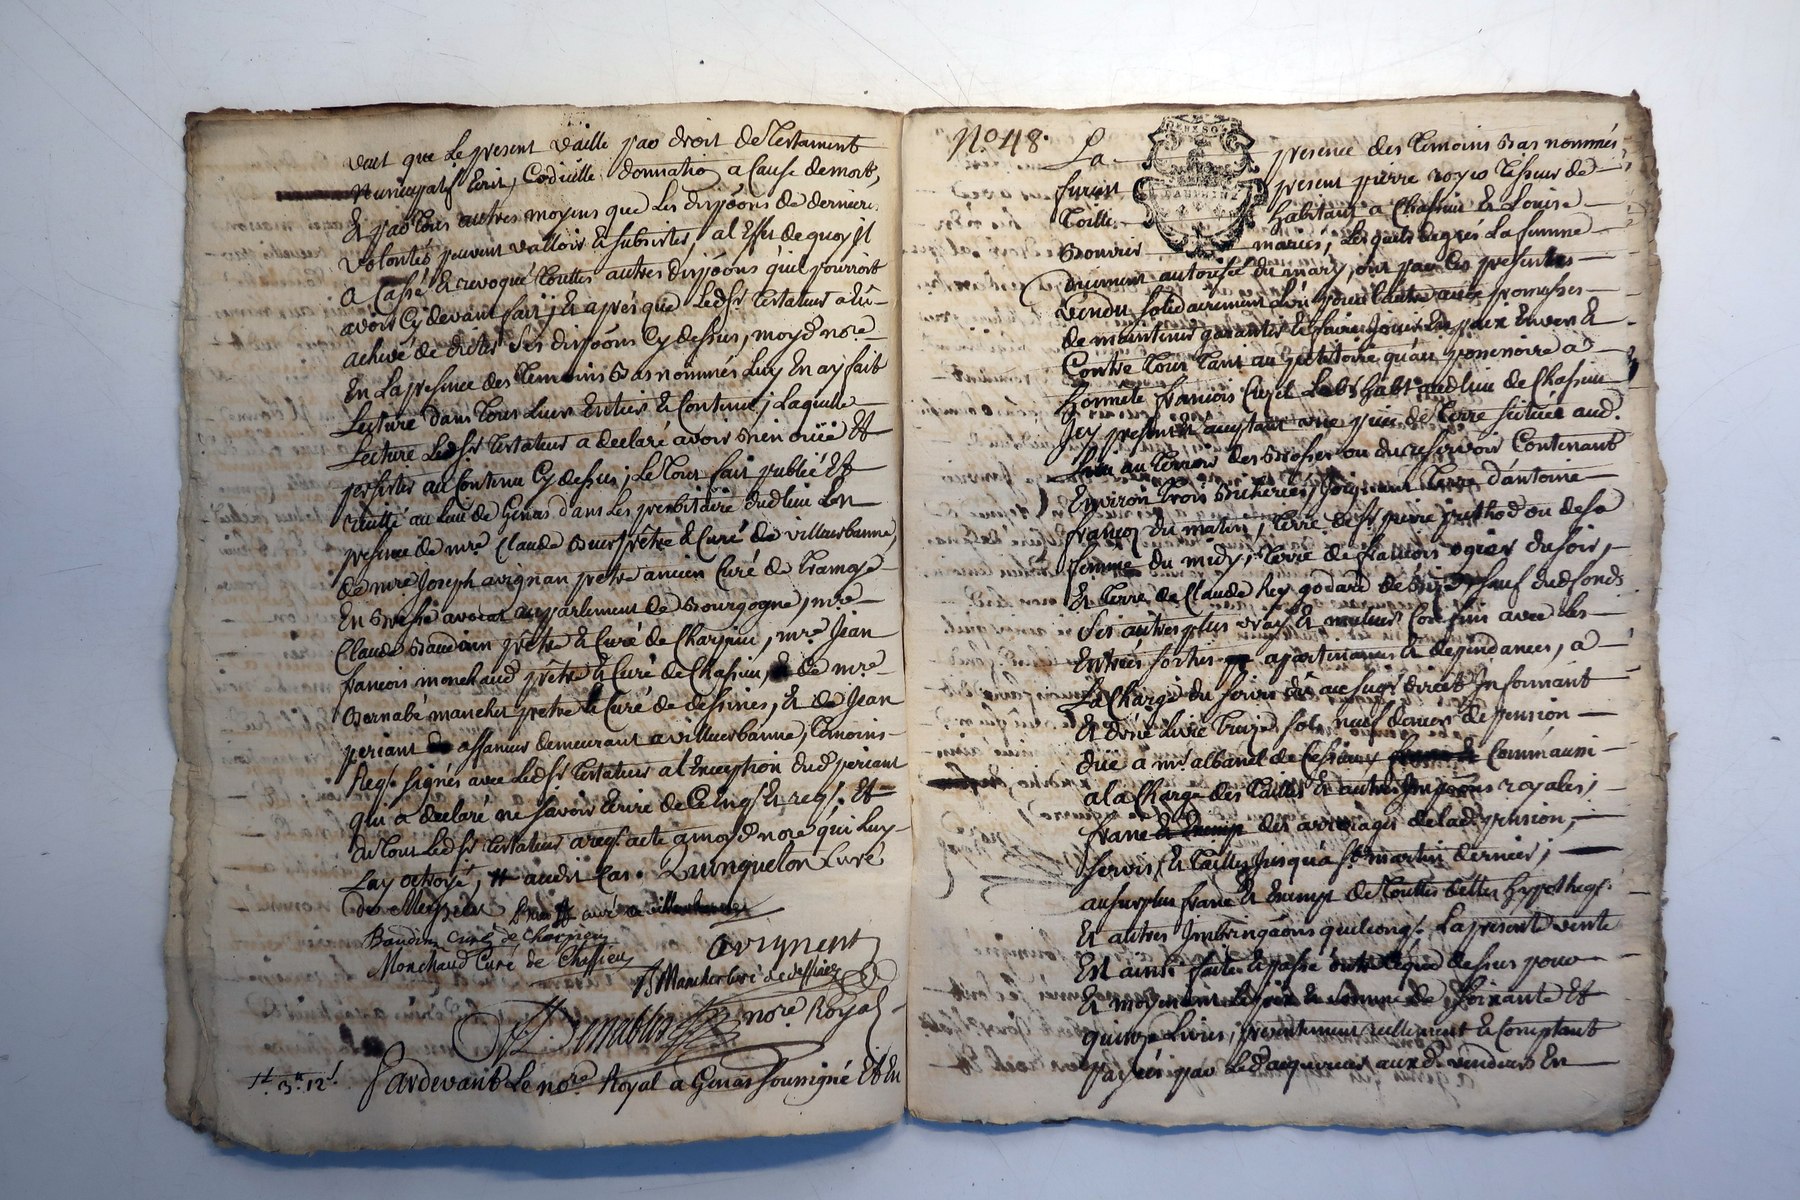 veut que le present vaille par droit de Testament
nuncupatif Ecrit, Codicille donnatio a Cause de mort,
Et par tous autres moyens que les dispoons de derniere
volontés peuvent valloir & subsister, al Effet de quoy Il
a Cassé & revoqué touttes autres dispoons quil pourroit
avoir Cy devant fait; Et aprés que ledsr Testateur a Eû
achevé de dicter ses dispoons Cy dessus, moyd nore
En La presence des Temoins Bas nommés Luy En ay fait
Lecture dans tout leur Entier & Contenu; Laquelle
Lecture Ledsr Testateur a declaré avoir Bien ouïe Et
persister au Contenu Cy dessus; Le tout fait publié Et
recitté au lieu de Genas dans Les presbitaire dudlieu En
presence de mre Claude prêtre & Curé de villeurbanne,
de mre Joseph avignan prêtre ancien Curé de Tramoye
En Bresse avocat au parlement de Bourgogne, mre
Claude Baudin prêtre & Curé de Charpieu, mre Jean
francois monchaud prêtre & Curé de Chassieu, & de mre
Bernabé mancher prêtre & Curé de dessines, Et de Jean
periant affaneur demeurant a villeurbanne, Temoins
Reqs signés avec ledsr Testateur al Exception dudperiant
qui a declaré ne savoir Ecrire de Ce Enqs Et reqs. Et
du tout Ledsr Testateur a reqs acte a moyd nore qui Luy
Lay octroyé, audit Cas. Quinqueton Curé
de Meyzieu curé de villeurbanne
Baudin curé de Charpieu avignent
Monchaud Curé de Chassieu
B Mancher curé de dessines
nore Royal
3tt 12s Pardevant Le nore Royal a Genas soussigné Et En
No. 48.
La presence des Temoins Bas nommés
furent present pierre royer Tisseur de
Toille habitant a Chassieu & Louise
Bouvier mariés, Lesquels de grés La femme
duement autorisée du mary, ont par Ces presentes
vendu solidairement Lun pour Lautre avec promesses
de maintenir garantir & faire Jouir En paix Envers &
Contre tous tant au petitoire qu'au possessoire a
Honnête francois Labr habt audlieu de Chassieu
Icy present & acceptant une piece de Terre scituée aud.
lieu au Terroir des Brosses ou du reservoir Contenant
Environ trois Bicherées, Joignant Terre d'antoine
francoz du matin, Terre de sr pierre prethod ou de sa
femme du midy, Terre de francois ogier du soir,
Et Terre de Claude Rey godard de Bize sauf dudfonds
ses autres plus vrays & meilleurs Confins avec Les
Entrées sorties apartenances & dependances, a
La Charge du servis dû au sugr direct Informant
Et d'une Livre Treize sols neuf deniers de pension
düe a mr albanel de Cessieux Comme aussi
a la Charge des Tailles & autres Impoons royales;
franc des arrerages de lad pension,
servis, & Tailles Jusqu'à st martin dernier;
au surplus franc & Exempt de Touttes dettes hypotheqs
Et autres Imbringaons quelconqs. La presente vente
Est ainsi faite & passée outre Ce que dessus pour
Et moyennant le prix & somme de soixante Et
quinze Livres, presentement réellement & Comptant
payées par Ledacquereur auxd vendeurs En